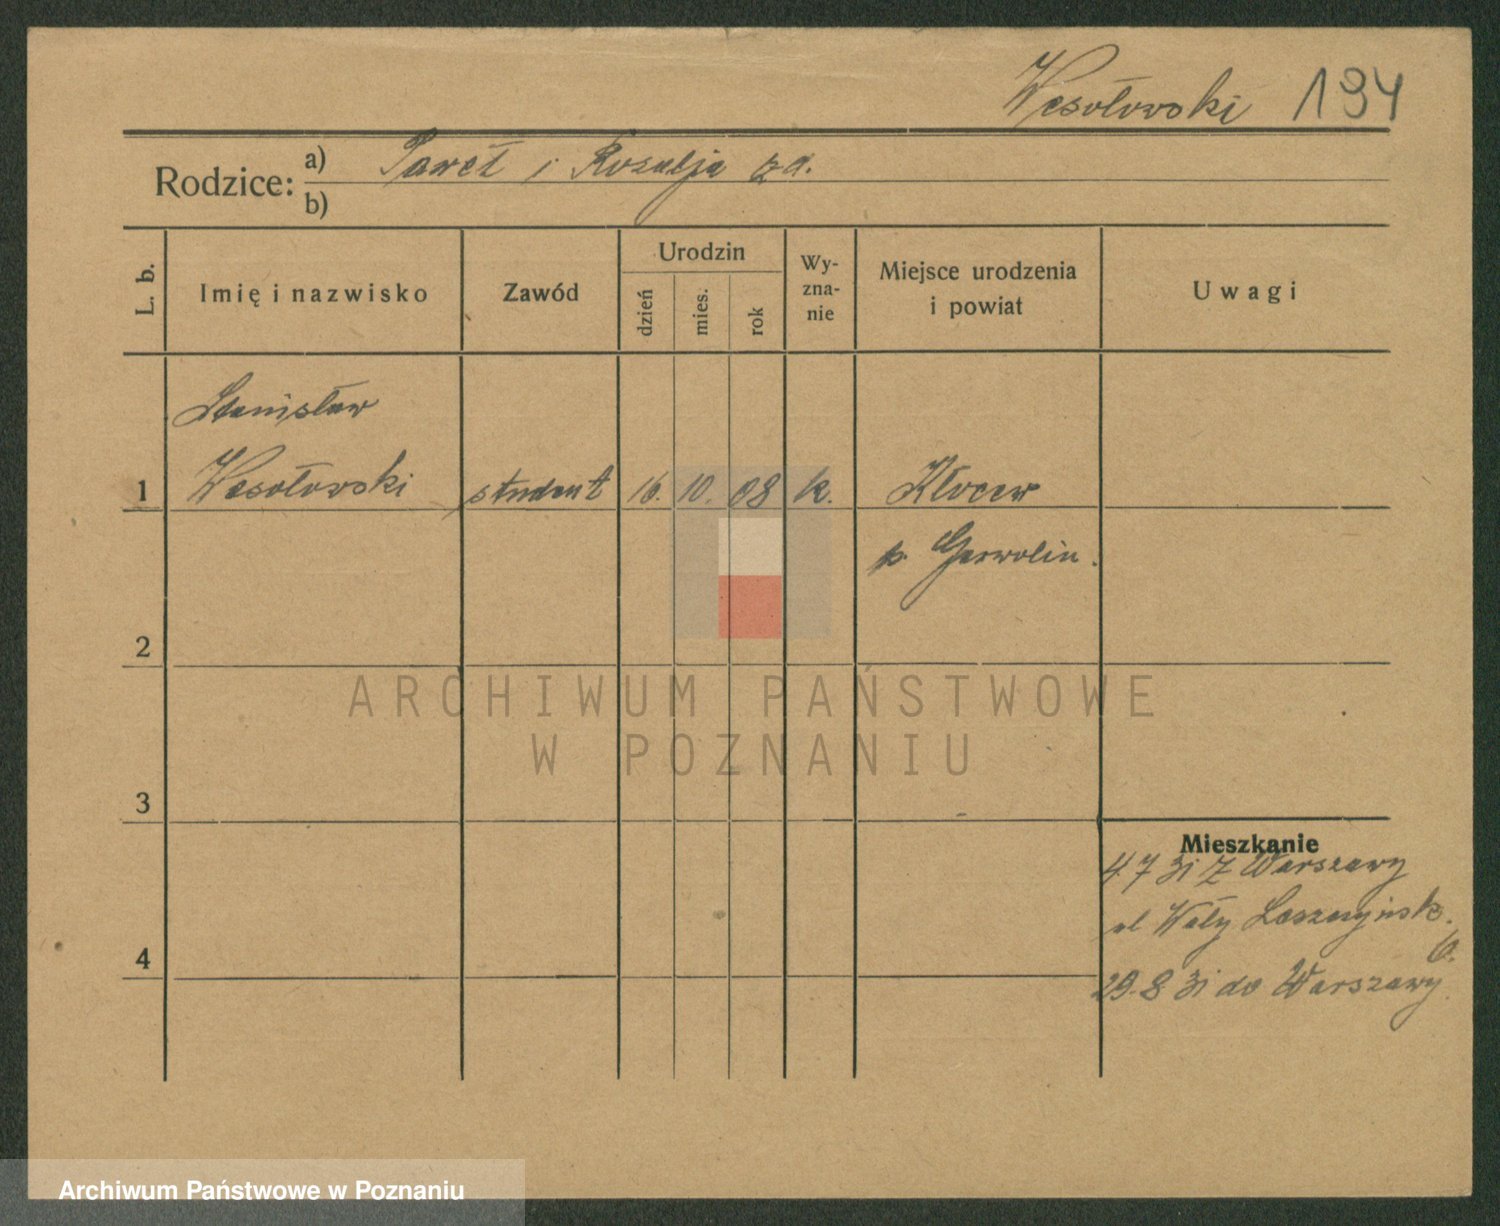 Wesołowski 194
Rodzice:
a) Paweł i Rozalja zd.
b)
L. b.
Imię i nazwisko
Zawód
Urodzin
dzień
mies.
rok
Wy-
zna-
nie
Miejsce urodzenia
i powiat
Uwagi
Stanisław
1 Wesołowski student 16. 10. 08 k. Kłocew
p. Garwolin.
2
3
4
Mieszkanie
4.7 31 Z Warszawy
ul Wały Leszczyńsk.
6.
29.8 31 do Warszawy.
ARCHIWUM PAŃSTWOWE
W POZNANIU
Archiwum Państwowe w Poznaniu